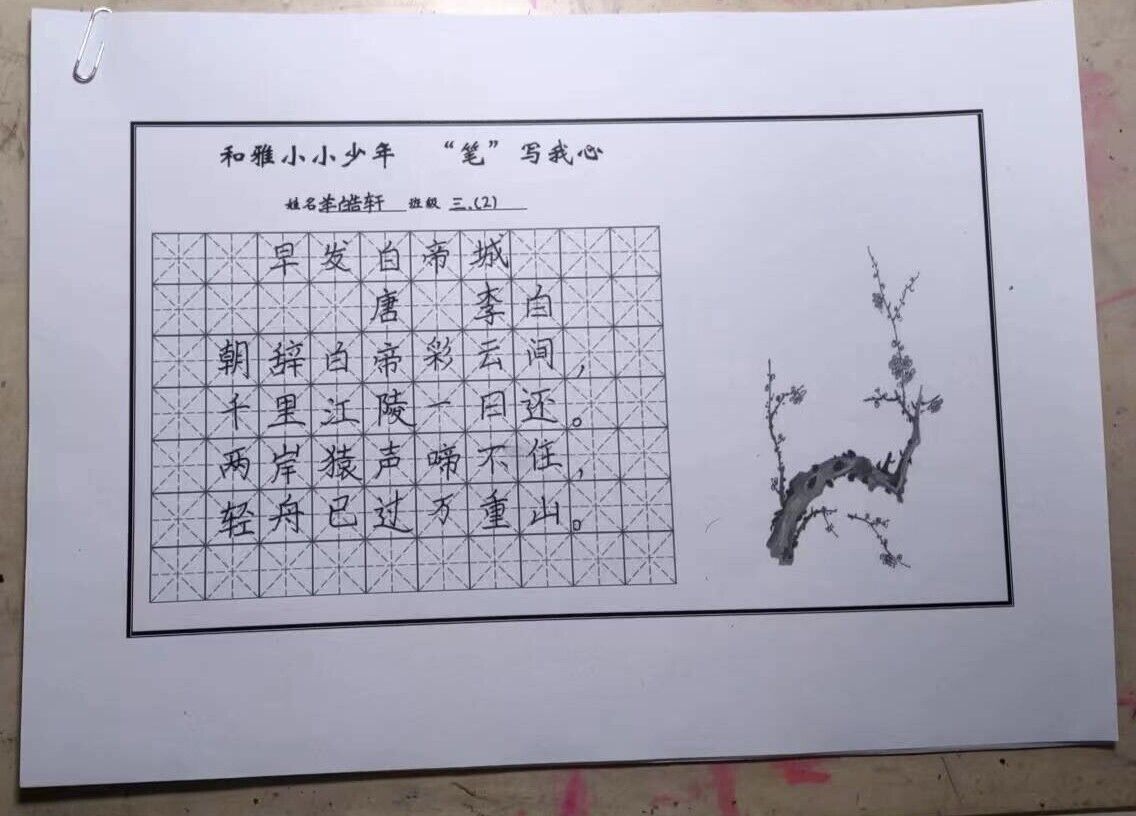 和雅小小少年 “笔”写我心
姓名 皓轩 班级 三.(2)
早发白帝城
唐 李白
朝辞白帝彩云间，
千里江陵一日还。
两岸猿声啼不住，
轻舟已过万重山。